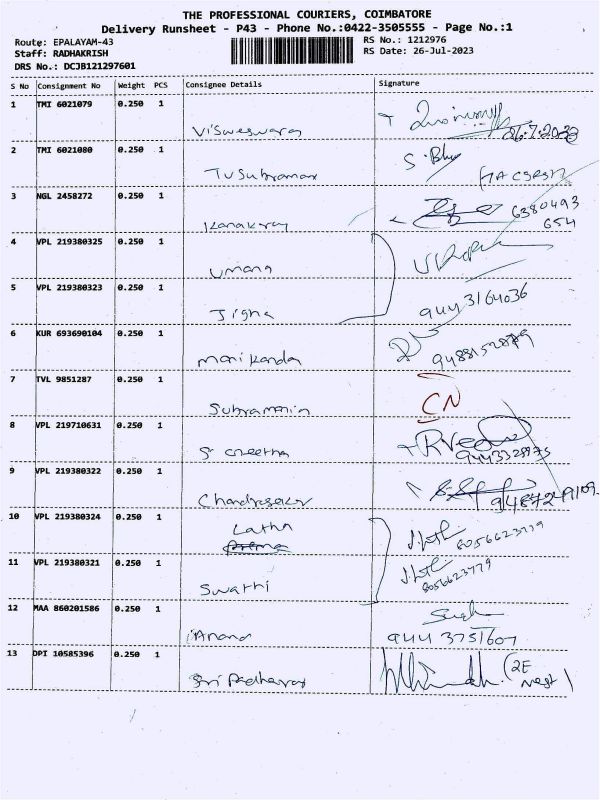 THE PROFESSIONAL COURIERS, COIMBATORE
Delivery Runsheet - P43 - Phone No.:0422-3505555 - Page No.:1
Route: EPALAYAM-43
RS No.: 1212976
Staff: RADHAKRISH
RS Date: 26-Jul-2023
DRS No.: DCJB121297601
S No Consignment No Weight PCS Consignee Details Signature
1 TMI 6021079 0.250 1
Visweswara 26.7.2023
2 TMI 6021080 0.250 1
TV Subramax
3 NGL 2458272 0.250 1
Kanakaraj 6380493
654
4 VPL 219380325 0.250 1
Umang
5 VPL 219380323 0.250 1
Jigha 944 3164036
6 KUR 693690104 0.250 1
Manikanda
7 TVL 9851287 0.250 1
Subramnin CN
8 VPL 219710631 0.250 1
9443328975
9 VPL 219380322 0.250 1
Chandrasekar 9487249109
10 VPL 219380324 0.250 1
Latha 8056623779
11 VPL 219380321 0.250 1
Swathi 8056623779
12 MAA 860201586 0.250 1
Anand 944 3751607
13 DPI 10585396 0.250 1
Sri (2E